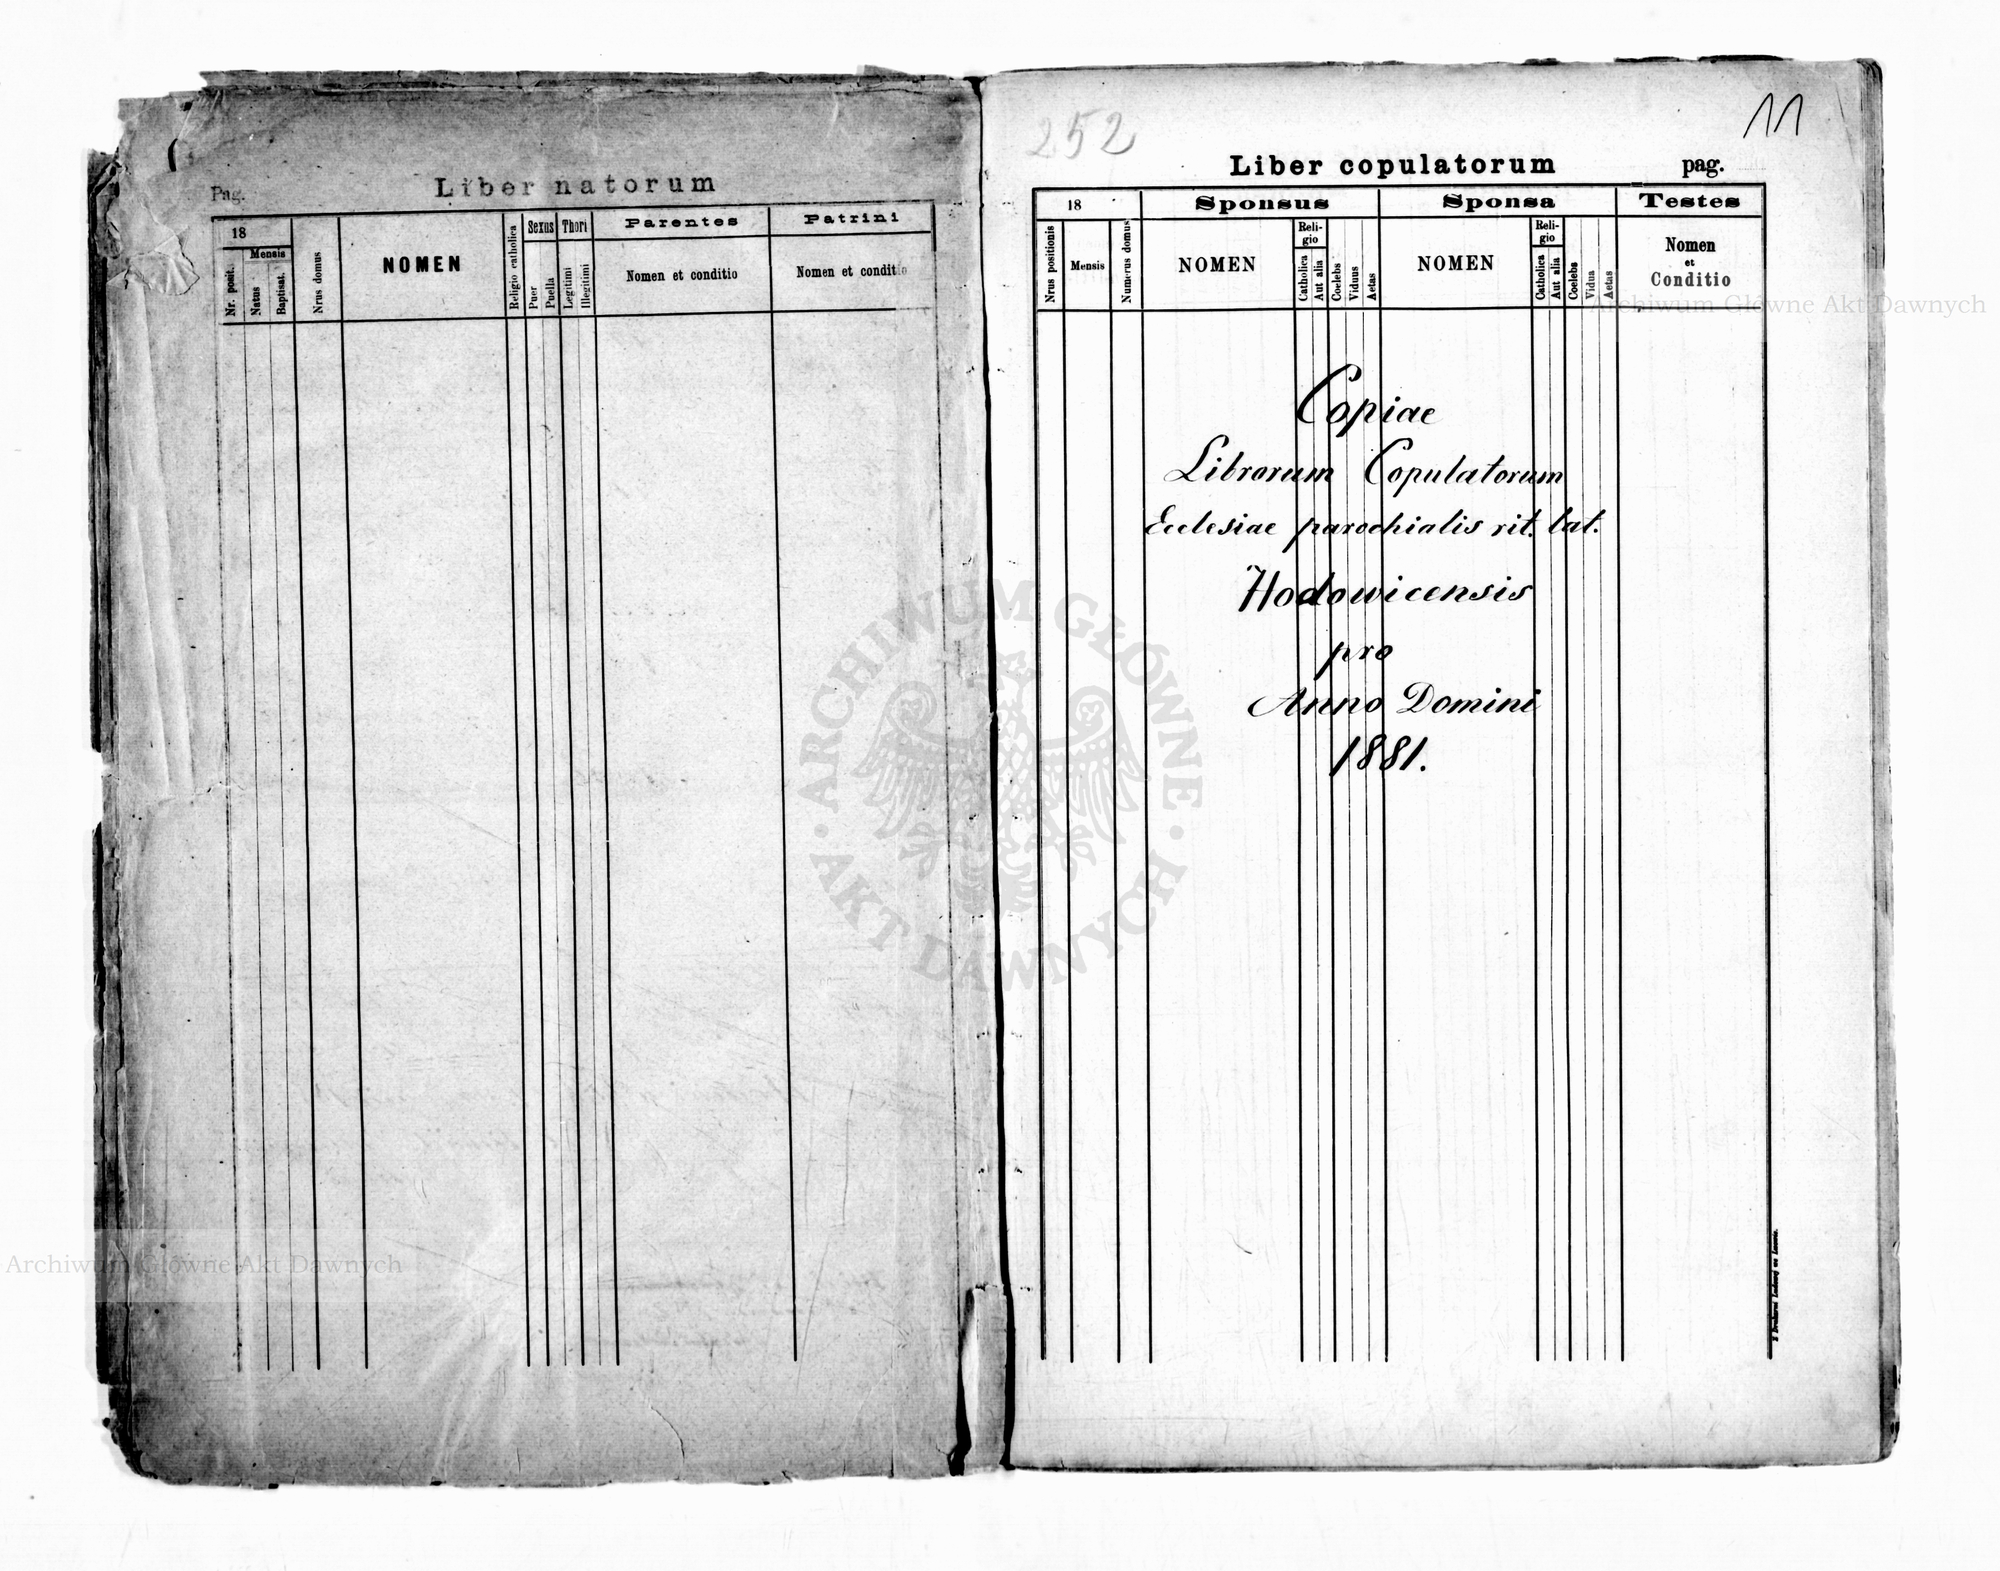 Pag.
Liber natorum
18
Mensis
Nr. posit.
Natus
Baptisat.
Nrus domus
NOMEN
Religio catholica
Sexus
Puer
Puella
Thori
Legitimi
Illegitimi
Parentes
Nomen et conditio
Patrini
Nomen et conditio
252
11
Liber copulatorum
pag.
18
Nrus positionis
Mensis
Numerus domus
Sponsus
NOMEN
Reli-
gio
Catholica
Aut alia
Coelebs
Viduus
Aetas
Sponsa
NOMEN
Reli-
gio
Catholica
Aut alia
Coelebs
Vidua
Aetas
Testes
Nomen
et
Conditio
Copiae
Librorum Copulatorum
Ecclesiae parochialis rit. lat.
Hodowicensis
pro
Anno Domini
1881.
Z Drukarni Ludowej we Lwowie.
Archiwum Główne Akt Dawnych
ARCHIWUM GŁÓWNE
· AKT DAWNYCH ·
Archiwum Główne Akt Dawnych